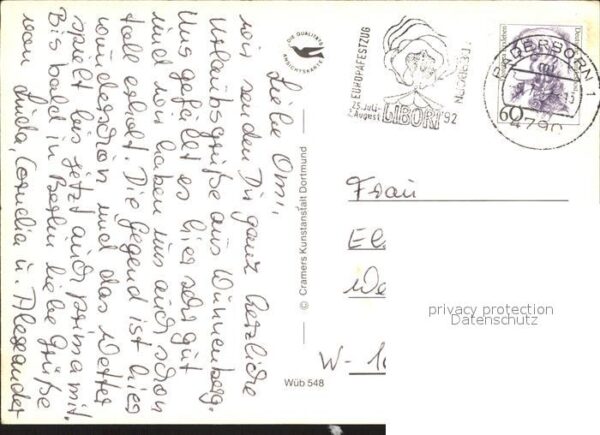 Liebe Omi,
wir senden Dir ganz herzliche
Urlaubsgrüße aus Wünnenberg.
Uns gefällt es hier sehr gut
und wir haben uns auch schon
toll erholt. Die Gegend ist hier
wunderschön und das Wetter
spielt bis jetzt auch prima mit.
Bis bald in Berlin liebe Grüße
von Linda, Cornelia u. Alexander
DIE QUALITÄTS
ANSICHTSKARTE
© Cramers Kunstanstalt Dortmund
Wüb 548
EUROPAFESTZUG
25. Juli-
2. August
LIBORI '92
PADERBORN 1
4790
60
Frau
El
We
W-1
privacy protection
Datenschutz